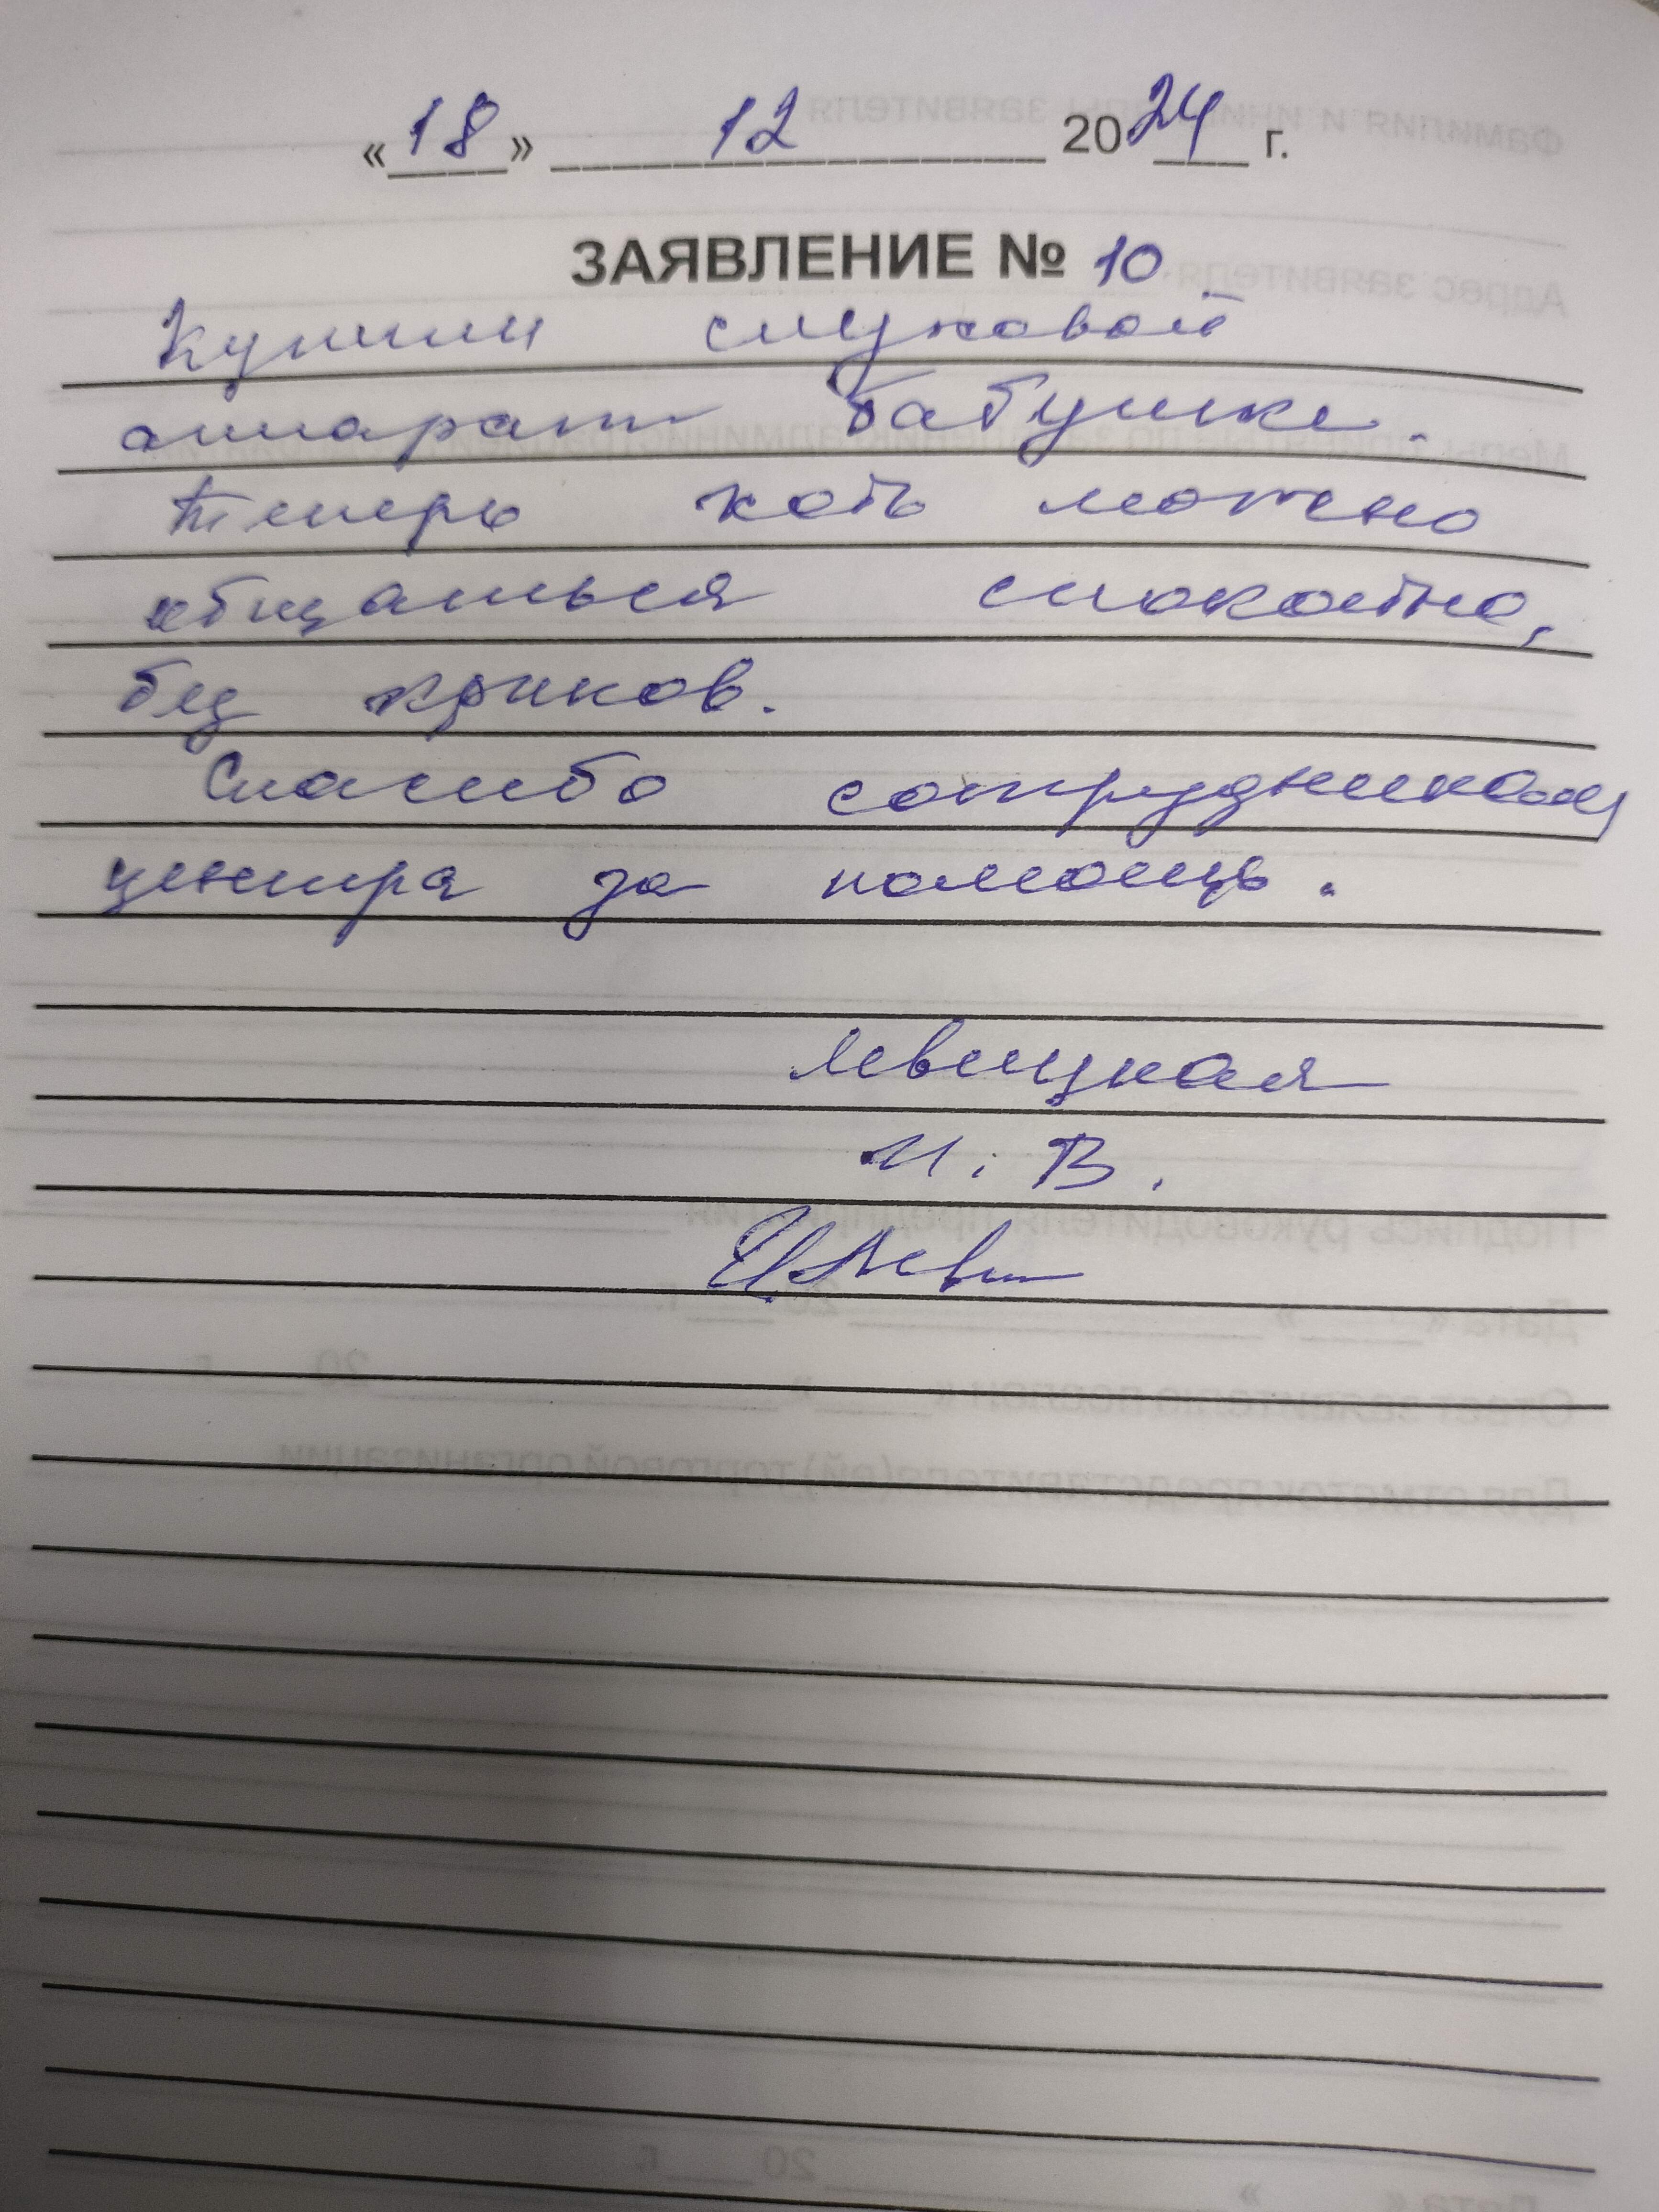 «18» 12 2024 г.
ЗАЯВЛЕНИЕ № 10
Купили слуховой
аппарат бабушке.
Теперь хоть можно
общаться спокойно,
без криков.
Спасибо сотрудникам
центра за помощь.
Левицкая
И. В.